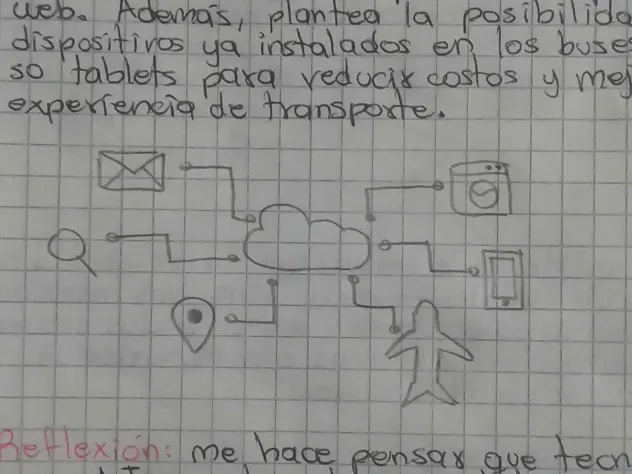 web. Además, plantea la posibilida
dispositivos ya instalados en los buse
so tablets para reducir costos y mej
experiencia de transporte.
Reflexión: me hace pensar que tecn